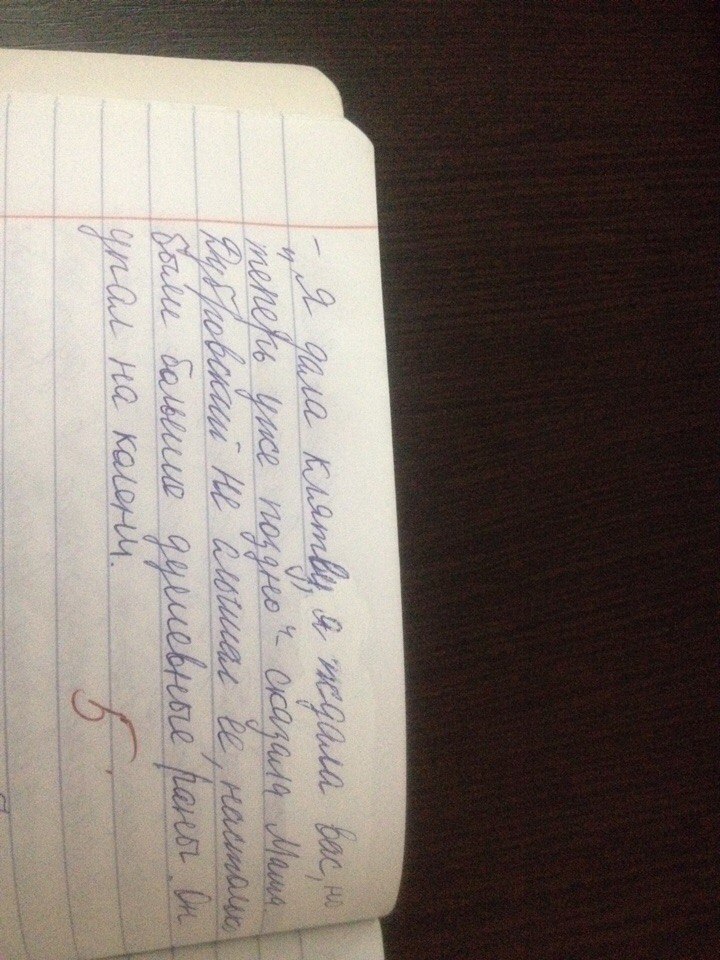 - „Я дала клятву, я ждала вас, но
теперь уже поздно“ - сказала Маша
Дубровский не слышал её, настолько
были большие душевные раны. Он
упал на колени.
5